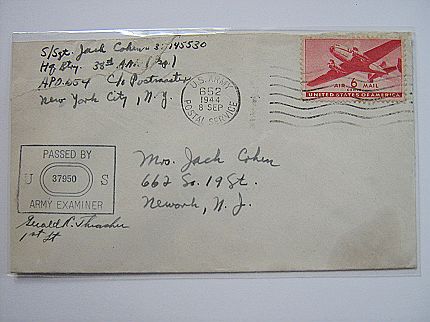 S/Sgt. Jack Cohen 32145530
Hq Btry. 38th AAA (Bg.)
APO 654 C/o Postmaster
New York City, N.Y.
U.S. ARMY
652
1944
8 SEP
POSTAL SERVICE
6¢
AIR MAIL
UNITED STATES OF AMERICA
PASSED BY
U 37950 S
ARMY EXAMINER
Gerald R.
1st Lt
Mrs. Jack Cohen
662 So. 19 St.
Newark, N. J.